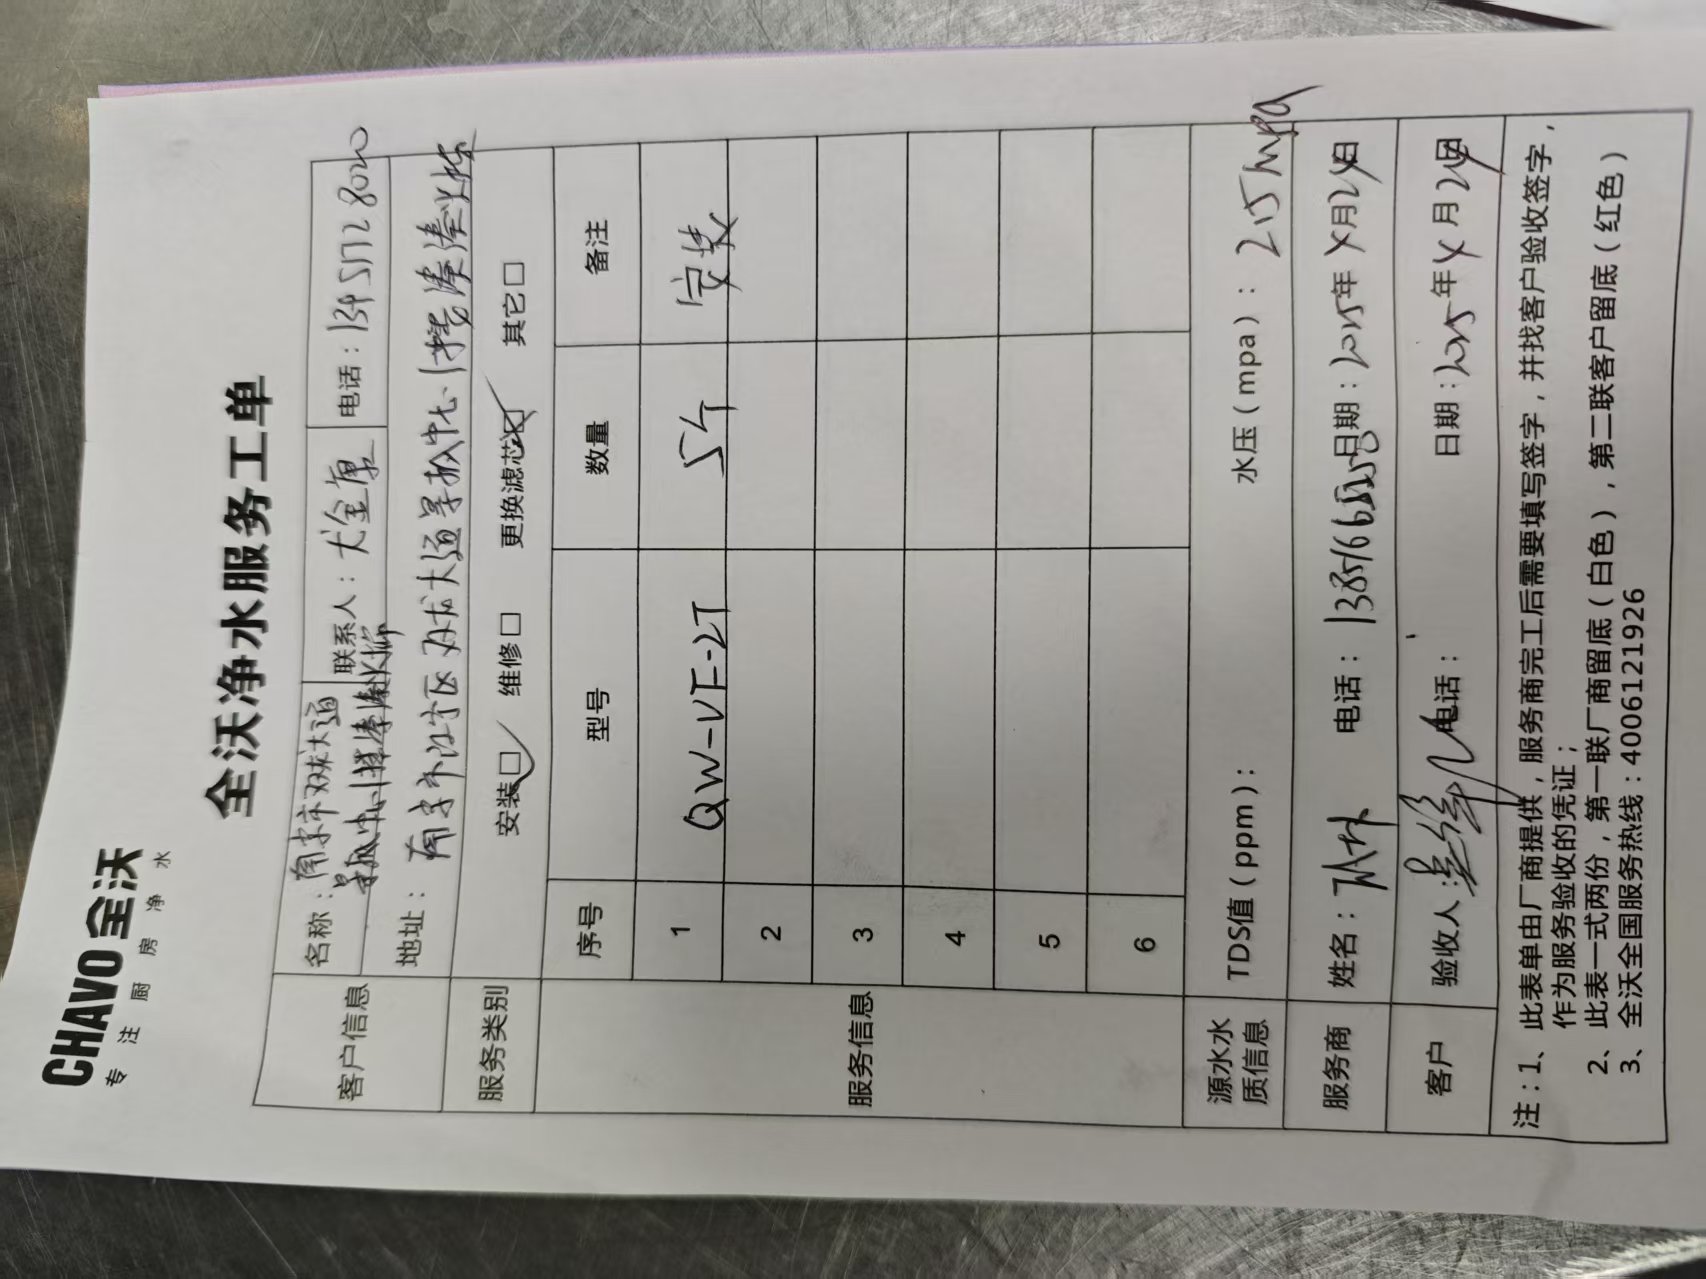 CHAVO 全沃
专注厨房净水
全沃净水服务工单
客户信息
名称：南京市双龙大道
联系人：
电话：
地址：南京市江宁区双龙大道景枫中心
服务类别
安装□ 维修□ 更换滤芯□ 其它□
服务信息
序号 型号 数量 备注
1 QW-VF-2T 5个 安装
2
3
4
5
6
源水水质信息
TDS值（ppm）： 水压（mpa）：
服务商
姓名： 电话： 日期：2025年4月24日
客户
验收人： 电话： 日期：2025年4月24日
注：1、此表单由厂商提供，服务商完工后需要填写签字，并找客户验收签字，
作为服务验收的凭证；
2、此表一式两份，第一联厂商留底（白色），第二联客户留底（红色）
3、全沃全国服务热线：4006121926